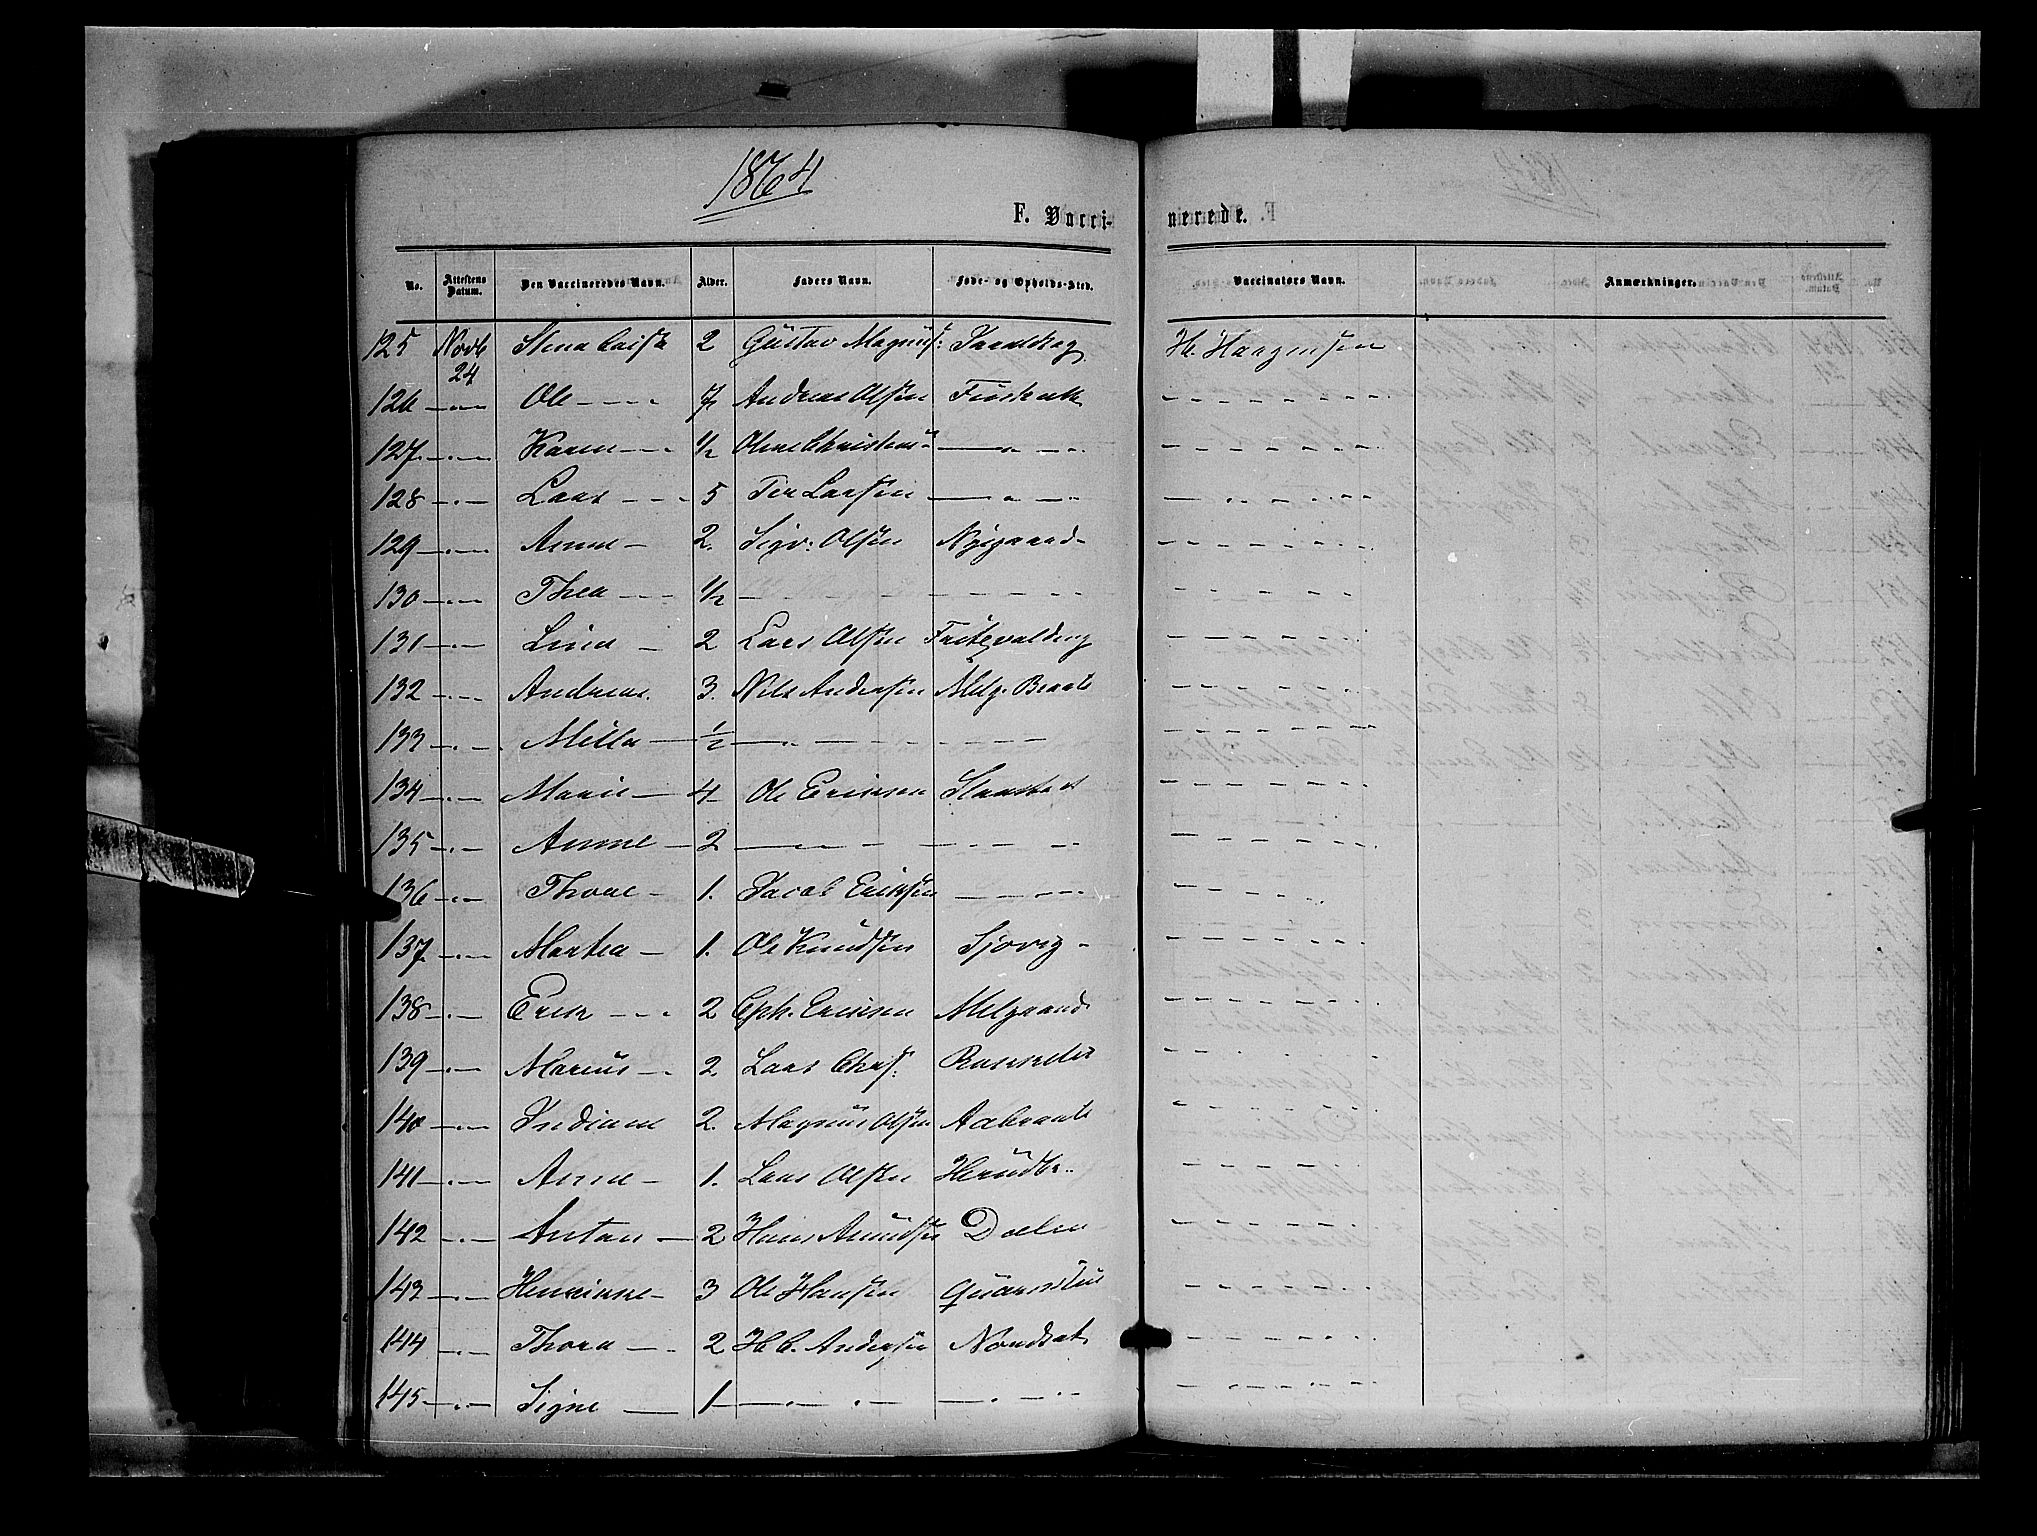 1864
F. Vacci- nerede.
No. Attestens Datum. Den Vaccineredes Navn. Alder. Faders Navn. Føde- og Opholds-Sted. Vaccinators Navn. Anmærkninger.
125 Novb 24 Stena 2 Gustav Magnus: H. Haagensen
126 — " — Ole - - - 7 Andreas Olsen - - - - - -
127 — " — Karen - - - 1/2 Olene — " — - - - - - - -
128 — " — Lars - - - 5 Per Larsen — " — - - - - - - -
129 — " — Anne - 2. Sigv: Olsen Nygaard - - - - - -
130 — " — Thea - - - 1/2 - - - - - - - - - - - - - - -
131 — " — Lina - 2 Lars Olsen - - - - - -
132 — " — Andreas 3. Nils Andersen Melg. Braat - - - - - -
133 — " — Milla — 1/2 — " — - - - - - - - - - - - - -
134 — " — Marie — 4 Ole Eriksen Slaastad - - - - - -
135 — " — Anne — 2 — " — - - - - - - - - - - -
136 — " — Thone - 1. Jacob Eriksen - - - - - - - - -
137 — " — Marthea - 1. Ole Knudsen Sjovig - - - - - - -
138 — " — Erik - - - 2 Cph. Eriksen Melgaard - - - - - -
139 — " — Marius - - 2. Lars Chrs: - - - - - -
140 — " — Indiane 2. Magnus Olsen Aabraate - - - - - -
141 — " — Anne - 1. Lars Olsen - - - - - -
142 — " — Anton — 2 Hans Amundsen Dælen - - - - - -
143 — " — Henrikke - 3 Ole Hansen - - - - - -
144 — " — Thora - - 2 H. C. Andersen - - - - - -
145 — " — Signe — 1 — " — " — — " — " - - - - - -